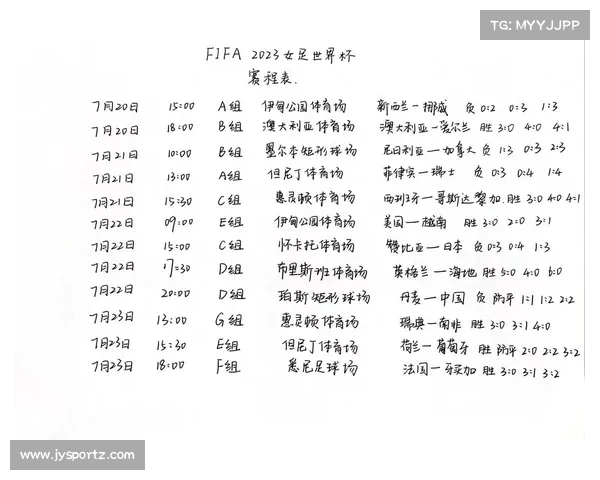 TG: MYYJJPP
FIFA 2023女足世界杯
赛程表.
7月20日 15:00 A组 伊甸公园体育场 新西兰一挪威 负 0:2 0:3 1:3
7月20日 18:00 B组 澳大利亚体育场 澳大利亚一爱尔兰 胜 3:0 4:0 4:1
7月21日 10:00 B组 墨尔本矩形球场 尼日利亚一加拿大 负 1:3 0:3 2:3
7月21日 13:00 A组 但尼丁体育场 菲律宾一瑞士 负 0:3 0:4 1:4
7月21日 15:30 C组 惠灵顿体育场 西班牙一哥斯达黎加. 胜 3:0 4:0 4:1
7月22日 09:00 E组 伊甸公园体育场 美国一越南 胜 3:0 2:0 3:1
7月22日 15:00 C组 怀卡托体育场 赞比亚一日本 负 0:3 0:4 1:3
7月22日 17:30 D组 布里斯班体育场 英格兰一海地 胜 5:0 4:0 6:0
7月22日 20:00 D组 珀斯矩形球场 丹麦一中国 负 防平 1:1 1:2 2:2
7月23日 13:00 G组 惠灵顿体育场 瑞典一南非 胜 3:0 3:1 4:0
7月23日 15:30 E组 但尼丁体育场 荷兰一葡萄牙 胜 防平 2:0 2:2 3:2
7月23日 18:00 F组 悉尼足球场 法国一牙买加 胜 3:0 3:1 3:2
www.jysportz.com